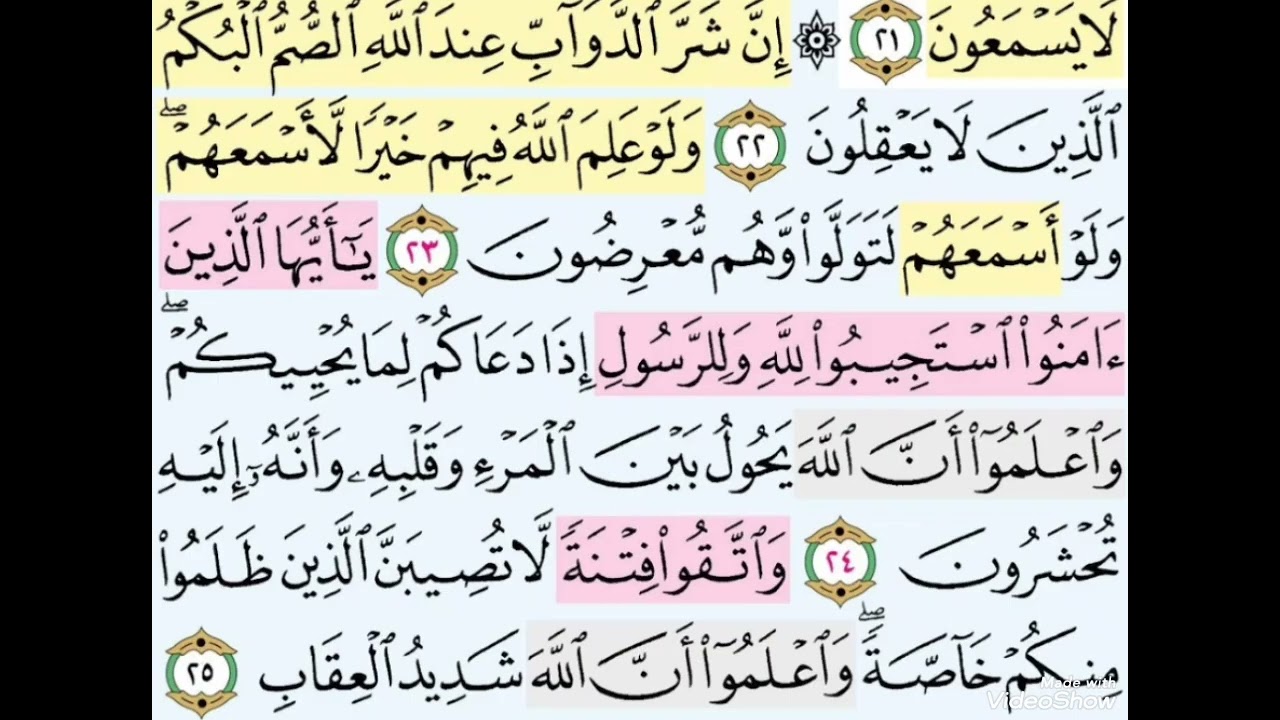 لَا يَسۡمَعُونَ ٢١ ۞ إِنَّ شَرَّ ٱلدَّوَآبِّ عِندَ ٱللَّهِ ٱلصُّمُّ ٱلۡبُكۡمُ
ٱلَّذِينَ لَا يَعۡقِلُونَ ٢٢ وَلَوۡ عَلِمَ ٱللَّهُ فِيهِمۡ خَيۡرٗا لَّأَسۡمَعَهُمۡۖ
وَلَوۡ أَسۡمَعَهُمۡ لَتَوَلَّواْ وَّهُم مُّعۡرِضُونَ ٢٣ يَٰٓأَيُّهَا ٱلَّذِينَ
ءَامَنُواْ ٱسۡتَجِيبُواْ لِلَّهِ وَلِلرَّسُولِ إِذَا دَعَاكُمۡ لِمَا يُحۡيِيكُمۡۖ
وَٱعۡلَمُوٓاْ أَنَّ ٱللَّهَ يَحُولُ بَيۡنَ ٱلۡمَرۡءِ وَقَلۡبِهِۦ وَأَنَّهُۥٓ إِلَيۡهِ
تُحۡشَرُونَ ٢٤ وَٱتَّقُواْ فِتۡنَةٗ لَّا تُصِيبَنَّ ٱلَّذِينَ ظَلَمُواْ
مِنكُمۡ خَآصَّةٗۖ وَٱعۡلَمُوٓاْ أَنَّ ٱللَّهَ شَدِيدُ ٱلۡعِقَابِ ٢٥
Made with
VideoShow